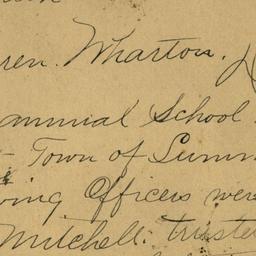 ren. Wharton.
annual School
Town of Summ
ing Officers were
Mitchell: truste